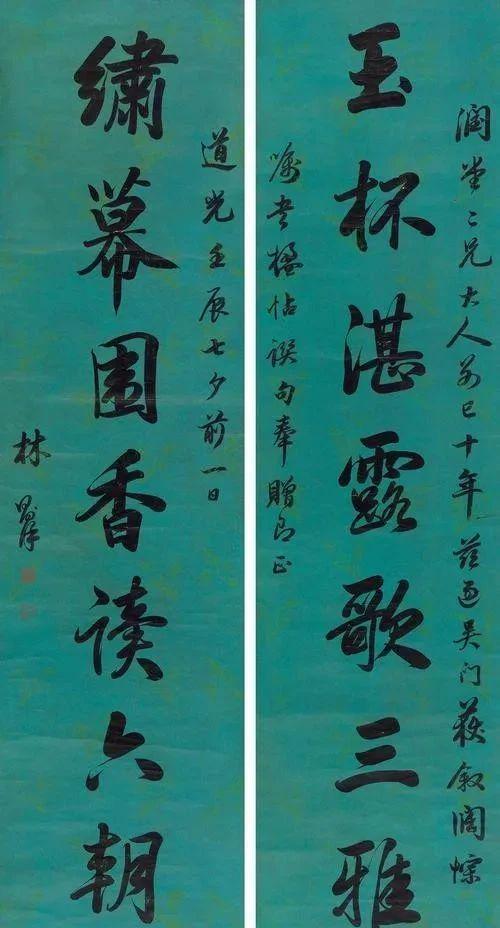 潤堂二兄大人别已十年兹過吴门获叙阔悰
玉杯湛露歌三雅
嘱书楹帖譔句奉贈即正
道光壬辰七夕前一日
繡幕圍香读六朝
林则徐